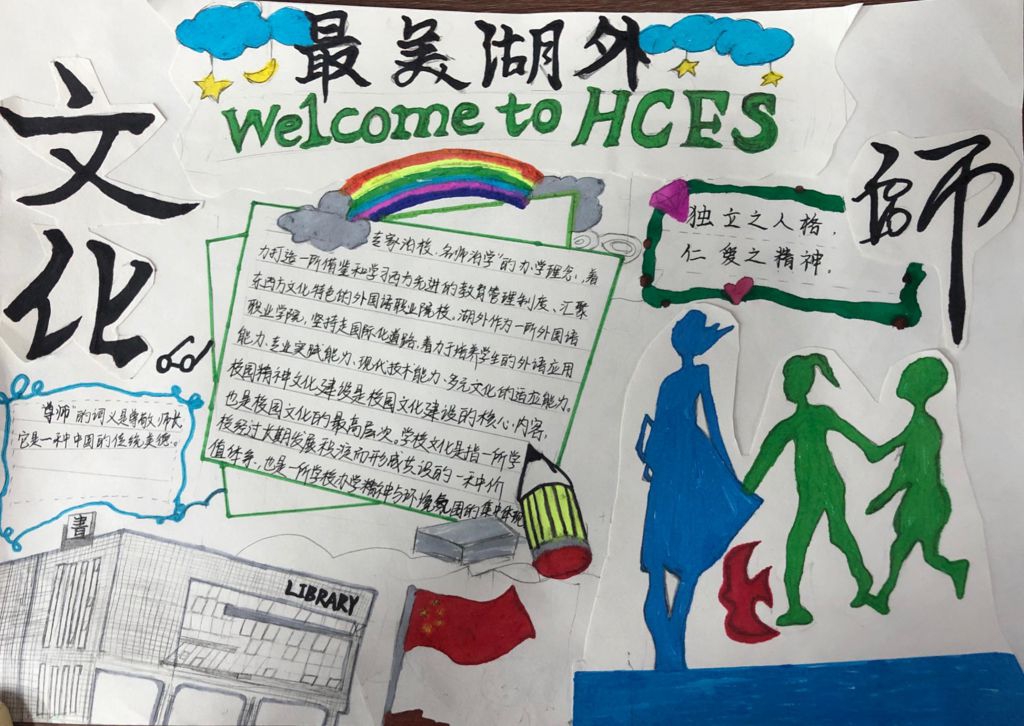 最美湖外
Welcome to HCFS
文化
師
独立之人格，
仁爱之精神。
走家治校、名师治学”的办学理念，着
力打造一所借鉴和学习西方先进的教育管理制度、汇聚
东西方文化特色的外国语职业院校。湖外作为一所外国语
职业学院，坚持走国际化道路，着力于培养学生的外语应用
能力、专业实践能力、现代技术能力、多元文化的适应能力。
校园精神文化建设是校园文化建设的核心内容，
也是校园文化的最高层次。学校文化是指一所学
校经过长期发展积淀而形成共识的一种价
值体系，也是一所学校办学精神与环境氛围的集中体现
“尊师”的词义是尊敬师长
它是一种中国的传统美德。
書
LIBRARY